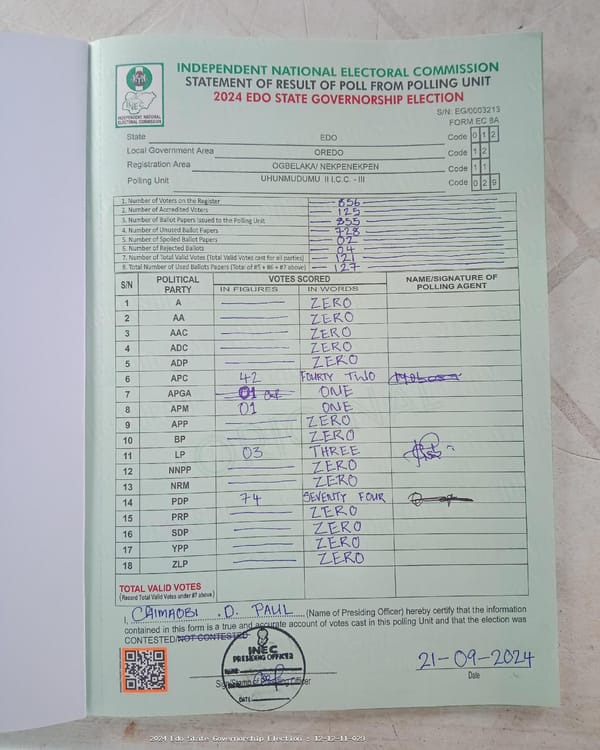 INDEPENDENT NATIONAL ELECTORAL COMMISSION
STATEMENT OF RESULT OF POLL FROM POLLING UNIT
2024 EDO STATE GOVERNORSHIP ELECTION
INEC
INDEPENDENT NATIONAL
ELECTORAL COMMISSION
S/N: EG/0003213
FORM EC 8A
State EDO Code 0 1 2
Local Government Area OREDO Code 1 2
Registration Area OGBELAKA/ NEKPENEKPEN Code 1 1
Polling Unit UHUNMUDUMU II I.C.C. - III Code 0 2 9
1. Number of Voters on the Register 856
2. Number of Accredited Voters 125
3. Number of Ballot Papers Issued to the Polling Unit 855
4. Number of Unused Ballot Papers 728
5. Number of Spoiled Ballot Papers 02
6. Number of Rejected Ballots 04
7. Number of Total Valid Votes (Total Valid Votes cast for all parties) 121
8. Total Number of Used Ballots Papers (Total of #5 + #6 + #7 above) 127
S/N POLITICAL PARTY VOTES SCORED NAME/SIGNATURE OF POLLING AGENT
IN FIGURES IN WORDS
1 A ZERO
2 AA ZERO
3 AAC ZERO
4 ADC ZERO
5 ADP ZERO
6 APC 42 FOURTY TWO
7 APGA 01 ONE
8 APM 01 ONE
9 APP ZERO
10 BP ZERO
11 LP 03 THREE
12 NNPP ZERO
13 NRM ZERO
14 PDP 74 SEVENTY FOUR
15 PRP ZERO
16 SDP ZERO
17 YPP ZERO
18 ZLP ZERO
TOTAL VALID VOTES
(Record Total Valid Votes under #7 above)
I, CAIMAOBI .D. PAUL (Name of Presiding Officer) hereby certify that the information
contained in this form is a true and accurate account of votes cast in this polling Unit and that the election was
CONTESTED/NOT CONTESTED
INEC
PRESIDING OFFICER
NAME
DATE
21-09-2024
Date
2024 Edo State Governorship Election : 12-12-11-029